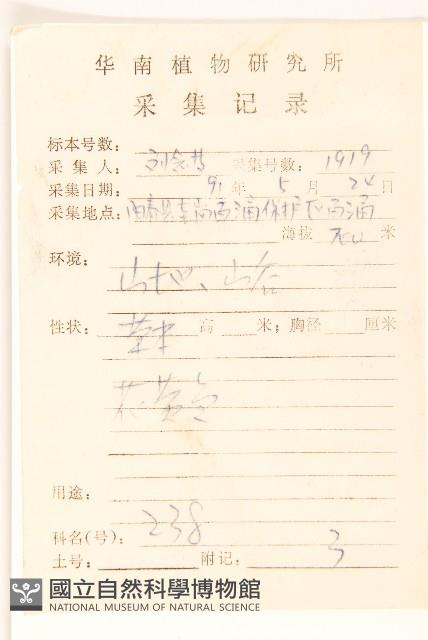 华南植物研究所
采集记录
标本号数：
采集人： 刘念 采集号数： 1919
采集日期： 91 年 5 月 24 日
采集地点： 保护区
海拔 700 米
环境：
山地、山谷
性状： 草本 高 米；胸径 厘米
花黄色
用途：
科名(号)： 238
土号： 附记， 3
國立自然科學博物館
NATIONAL MUSEUM OF NATURAL SCIENCE